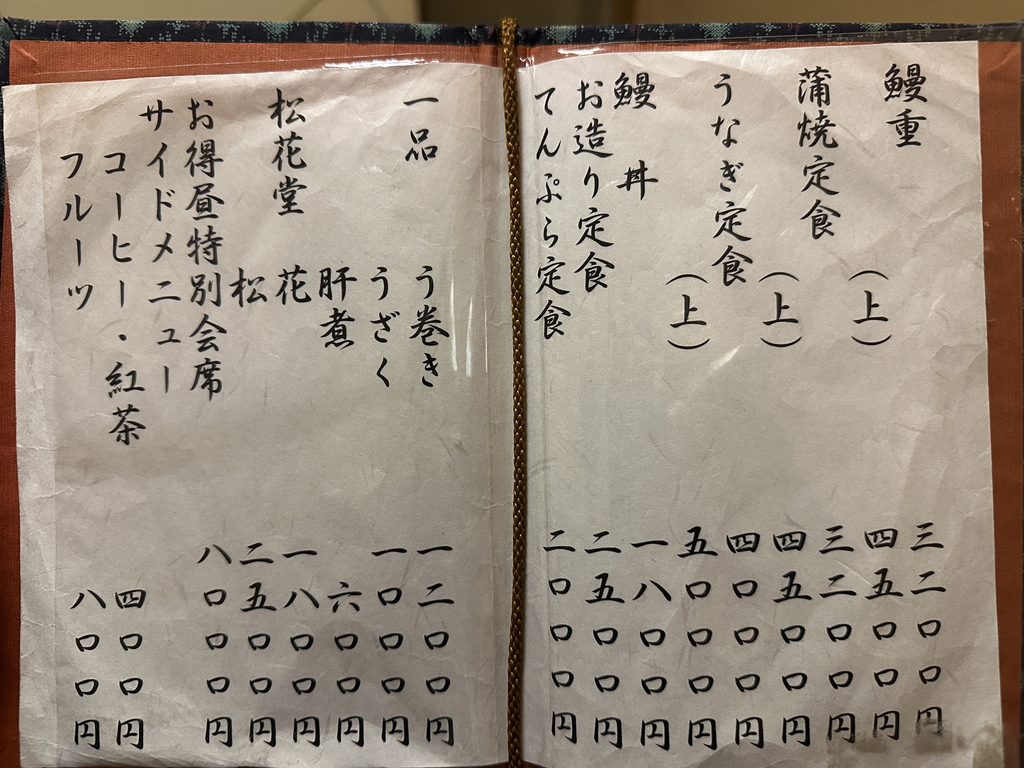 鰻重 三二〇〇円
(上) 四五〇〇円
蒲焼定食 三二〇〇円
(上) 四五〇〇円
うなぎ定食 四〇〇〇円
(上) 五〇〇〇円
鰻丼 一八〇〇円
お造り定食 二五〇〇円
てんぷら定食 二〇〇〇円
一品 う巻き 一二〇〇円
うざく 一〇〇〇円
肝煮 六〇〇円
松花堂 花 一八〇〇円
松 二五〇〇円
お得昼特別会席 八〇〇〇円
サイドメニュー
コーヒー・紅茶 四〇〇円
フルーツ 八〇〇円